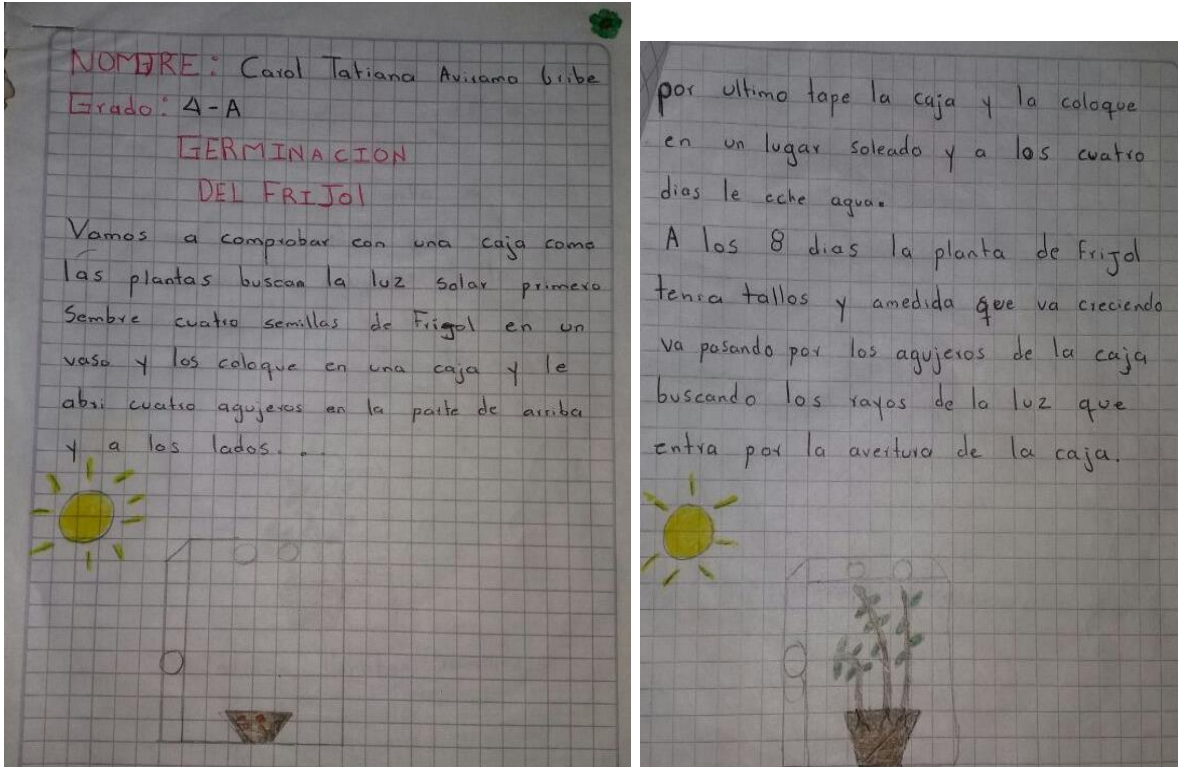 NOMBRE: Carol Tatiana Avirama Uribe
Grado: 4-A
GERMINACION
DEL FRIJOl
Vamos a comprobar con una caja como
las plantas buscan la luz solar primero
Sembre cuatro semillas de Frigol en un
vaso y los coloque en una caja y le
abri cuatro agujeros en la parte de arriba
y a los lados..
por ultimo tape la caja y la coloque
en un lugar soleado y a los cuatro
dias le eche agua.
A los 8 dias la planta de Frijol
tenia tallos y amedida que va creciendo
va pasando por los agujeros de la caja
buscando los rayos de la luz que
entra por la avertura de la caja.